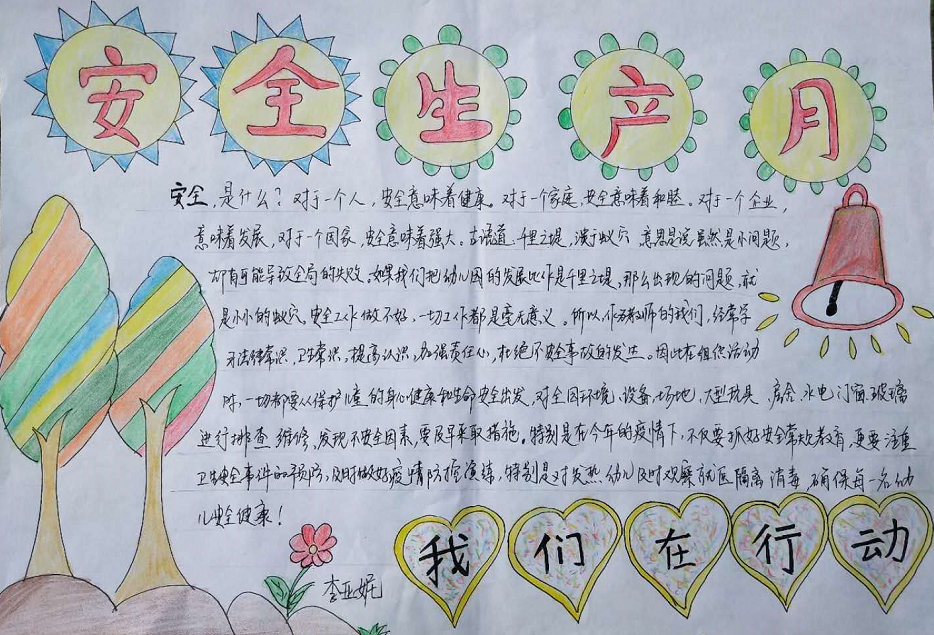 安全生产月
安全,是什么?对于一个人,安全意味着健康。对于一个家庭,安全意味着和睦。对于一个企业,
意味着发展,对于一个国家,安全意味着强大。古语道:千里之堤,溃于蚁穴 意思是说虽然是小问题,
却有可能导致全局的失败,如果我们把幼儿园的发展比作是千里之堤,那么出现的问题,就
是小小的蚁穴。安全工作做不好,一切工作都是毫无意义。所以,作为教师的我们,经常学
习法律常识,卫生常识,提高认识,加强责任心,杜绝不安全事故的发生。因此在组织活动
时,一切都要从保护儿童的身心健康和生命安全出发,对全园环境、设备、场地、大型玩具、房舍、水电、门窗、玻璃
进行排查 维修,发现不安全因素,要及早采取措施。特别是在今年的疫情下,不仅要抓好安全常规教育,更要注重
卫生安全事件的预防,及时做好疫情防控演练,特别是对发热幼儿及时观察就医隔离 消毒,确保每一名幼
儿安全健康!
李亚妮
我们在行动